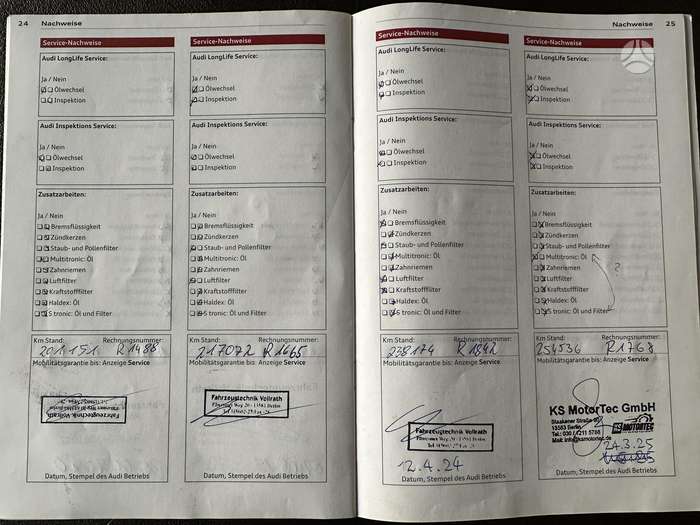 24 Nachweise
Service-Nachweise
Audi LongLife Service:
Ja / Nein
Ölwechsel
Inspektion
Audi Inspektions Service:
Ölwechsel
Inspektion
Zusatzarbeiten:
Ja / Nein
Bremsflüssigkeit
Zündkerzen
Staub- und Pollenfilter
Multitronic: Öl
Zahnriemen
Luftfilter
Kraftstofffilter
Haldex: Öl
S tronic: Öl und Filter
Km Stand: Rechnungsnummer:
201151 R1486
Mobilitätsgarantie bis: Anzeige Service
Fahrzeugtechnik Vollrath
Datum, Stempel des Audi Betriebs
Service-Nachweise
Audi LongLife Service:
Ja / Nein
Ölwechsel
Inspektion
Audi Inspektions Service:
Ja / Nein
Ölwechsel
Inspektion
Zusatzarbeiten:
Ja / Nein
Bremsflüssigkeit
Zündkerzen
Staub- und Pollenfilter
Multitronic: Öl
Zahnriemen
Luftfilter
Kraftstofffilter
Haldex: Öl
S tronic: Öl und Filter
Km Stand: Rechnungsnummer:
217072 R1665
Mobilitätsgarantie bis: Anzeige Service
Fahrzeugtechnik Vollrath
Datum, Stempel des Audi Betriebs
Nachweise 25
Service-Nachweise
Audi LongLife Service:
Ja / Nein
Ölwechsel
Inspektion
Audi Inspektions Service:
Ja / Nein
Ölwechsel
Inspektion
Zusatzarbeiten:
Ja / Nein
Bremsflüssigkeit
Zündkerzen
Staub- und Pollenfilter
Multitronic: Öl
Zahnriemen
Luftfilter
Kraftstofffilter
Haldex: Öl
S tronic: Öl und Filter
Km Stand: Rechnungsnummer:
238174 R1842
Mobilitätsgarantie bis: Anzeige Service
Fahrzeugtechnik Vollrath
12.4.24
Datum, Stempel des Audi Betriebs
Service-Nachweise
Audi LongLife Service:
Ja / Nein
Ölwechsel
Inspektion
Audi Inspektions Service:
Ja / Nein
Ölwechsel
Inspektion
Zusatzarbeiten:
Ja / Nein
Bremsflüssigkeit
Zündkerzen
Staub- und Pollenfilter
Multitronic: Öl
Zahnriemen ?
Luftfilter
Kraftstofffilter
Haldex: Öl
S tronic: Öl und Filter
Km Stand: Rechnungsnummer:
254536 R1768
Mobilitätsgarantie bis: Anzeige Service
KS MotorTec GmbH
Staakener Straße
13583 Berlin
Tel.: 030 / 1211 5788
Mail: info@ksmotortec.de
24.3.25
Datum, Stempel des Audi Betriebs